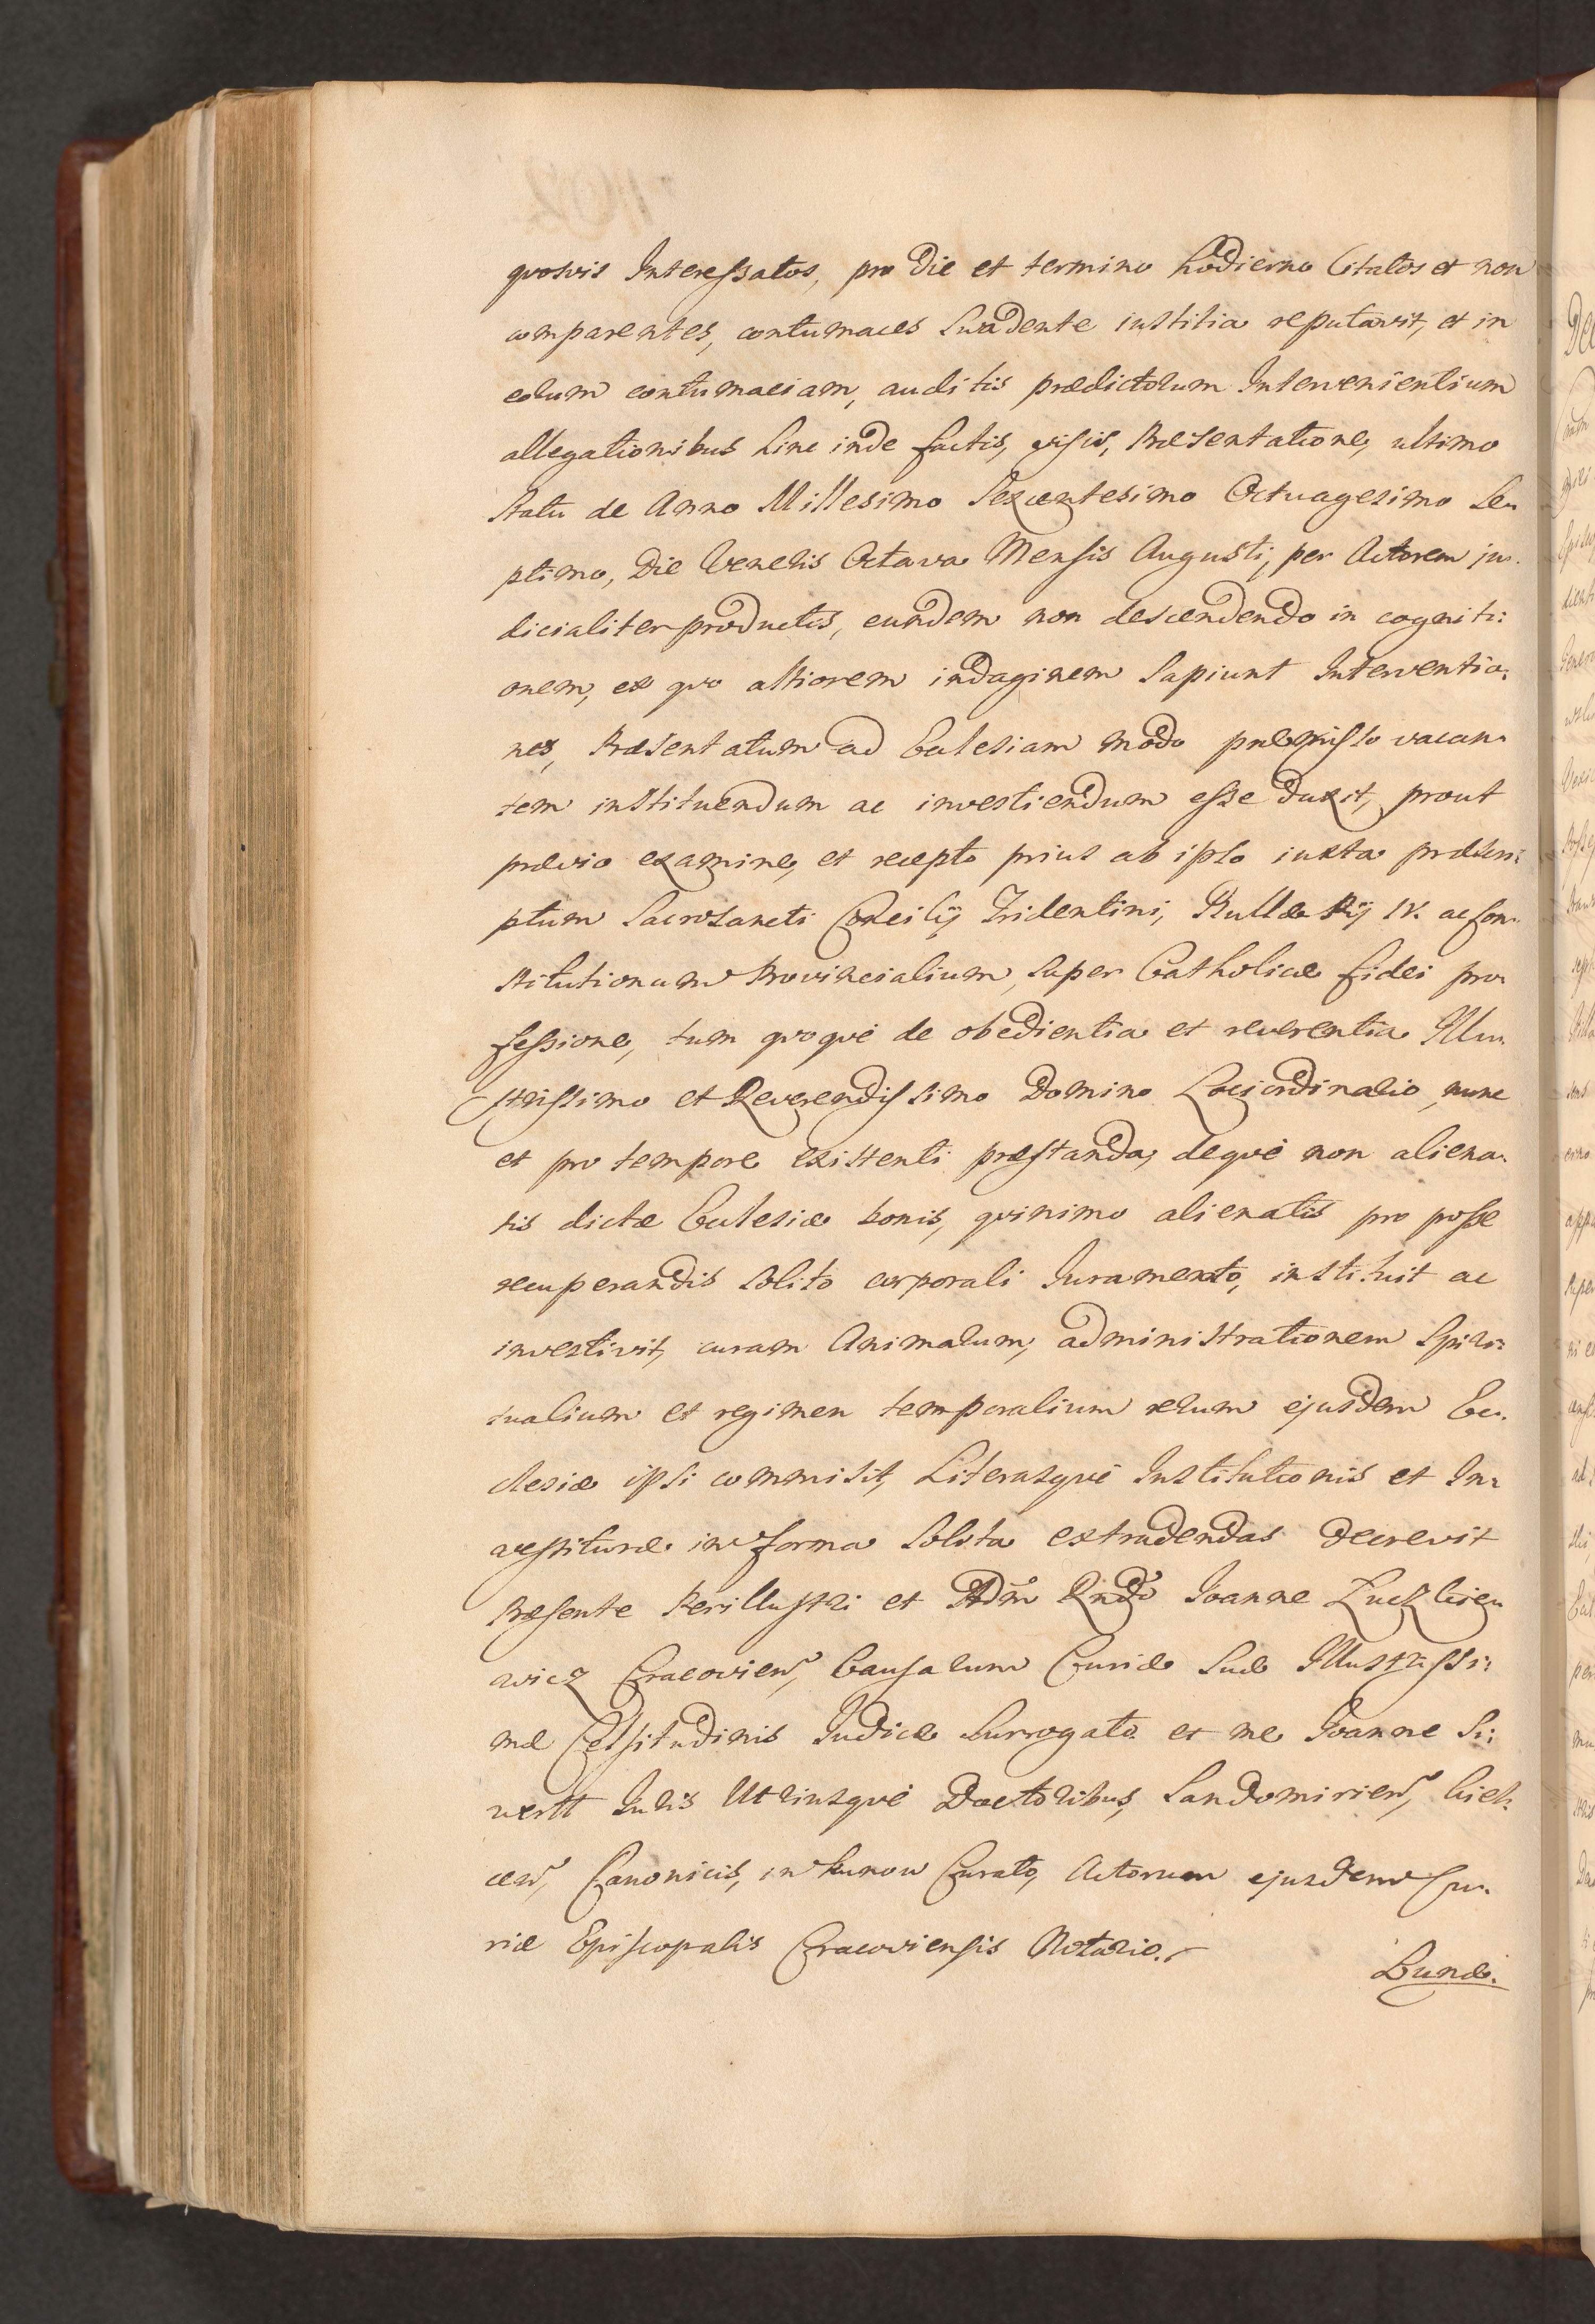 quosvis Interessatos, pro Die et termino hodierno Citatos et non
comparentes, contumaces Suadente iustitia reputavit, et in
eorum contumaciam, auditis prædictorum Intervenientium
allegationibus hinc inde factis, visis, Præsentatione, ultimo
Statu de Anno Millesimo Sexcentesimo Octuagesimo Se-
ptimo, Die Veneris Octava Mensis Augusti, per Actorem ju-
dicialiter productis, eundem non descendendo in cogniti:
onem, ex quo altiorem indaginem Sapiunt Interventio:
nes, Præsentatum ad Ecclesiam modo præmisso vacan-
tem instituendum ac investiendum esse duxit, prout
prævio examine, et recepto prius ab ipso iuxta præscri:
ptum Sacrosancti Concilij Tridentini, Bullæ Pij IV. ac Con-
stitutionum Provincialium, Super Catholicæ fidei pro-
fessione, tum quoque de obedientia et reverentia Illu-
strissimo et Reverendissimo Domino Loci ordinario, nunc
et pro tempore existenti præstanda, deque non aliena-
tis dictæ Ecclesiæ bonis, quinimo alienatis pro posse
recuperandis Solito corporali Iuramento, instituit ac
investivit, curam Animarum, administrationem Spiri:
tualium et regimen temporalium rerum ejusdem Ec-
clesiæ ipsi commisit, Literasque Institutionis et In-
vestituræ in forma Solita extradendas decrevit
Præsente Perillustri et Adm̃ Rndo Ioanne Luczkie-
wicz Cracovien, Causarum Curiæ Suæ Illustrissi:
mæ Celsitudinis Iudice Surrogato et me Ioanne Si:
wertt Iuris Utriusque Doctoribus, Sandomirien, Kiel-
cen, Canonicis, in Kunow Curato, Actorum ejusdem Cu-
riæ Episcopalis Cracoviensis Notario.
Lunæ.